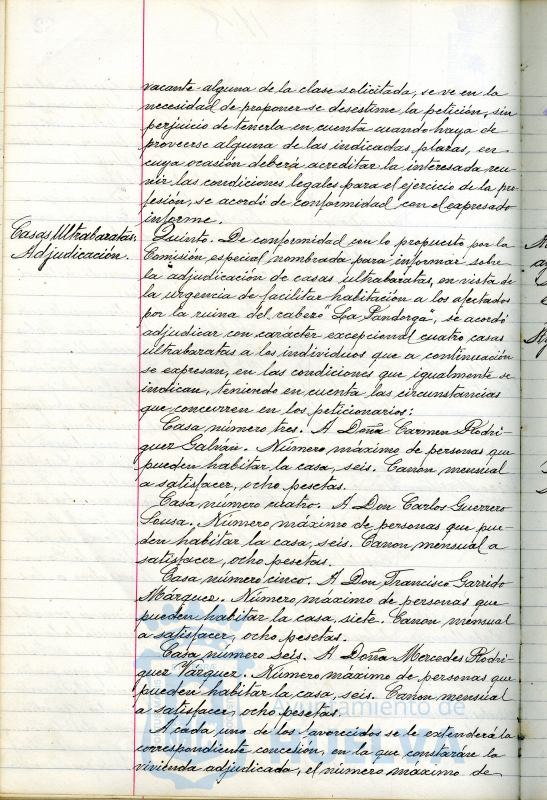 vacante alguna de la clase solicitada, se ve en la
necesidad de proponer se desestime la petición, sin
perjuicio de tenerla en cuenta cuando haya de
proveerse alguna de las indicadas plazas, en
cuya ocasión deberá acreditar la interesada reu-
nir las condiciones legales para el ejercicio de la pro-
fesión, se acordó de conformidad con el expresado
informe.
Casas Ultrabaratas.
Adjudicación.
Quinto. De conformidad con lo propuesto por la
Comisión especial nombrada para informar sobre
la adjudicación de casas ultrabaratas, en vista de
la urgencia de facilitar habitación a los afectados
por la ruina del cabezo "La Panderga", se acordó
adjudicar con carácter excepcional cuatro casas
ultrabaratas a los individuos que a continuación
se expresan, en las condiciones que igualmente se
indican, teniendo en cuenta las circunstancias
que concurren en los peticionarios:
Casa número tres. A Doña Carmen Rodrí-
guez Galván. Número máximo de personas que
pueden habitar la casa, seis. Canon mensual
a satisfacer, ocho pesetas.
Casa número cuatro. A Don Carlos Guerrero
Sousa. Número máximo de personas que pue-
den habitar la casa, seis. Canon mensual a
satisfacer, ocho pesetas.
Casa número cinco. A Don Francisco Garrido
Márquez. Número máximo de personas que
pueden habitar la casa, siete. Canon mensual
a satisfacer, ocho pesetas.
Casa número seis. A Doña Mercedes Rodrí-
guez Vázquez. Número máximo de personas que
pueden habitar la casa, seis. Canon mensual
a satisfacer, ocho pesetas.
Ayuntamiento de
A cada uno de los favorecidos se le extenderá la
correspondiente concesión, en la que constarán la
vivienda adjudicada, el número máximo de